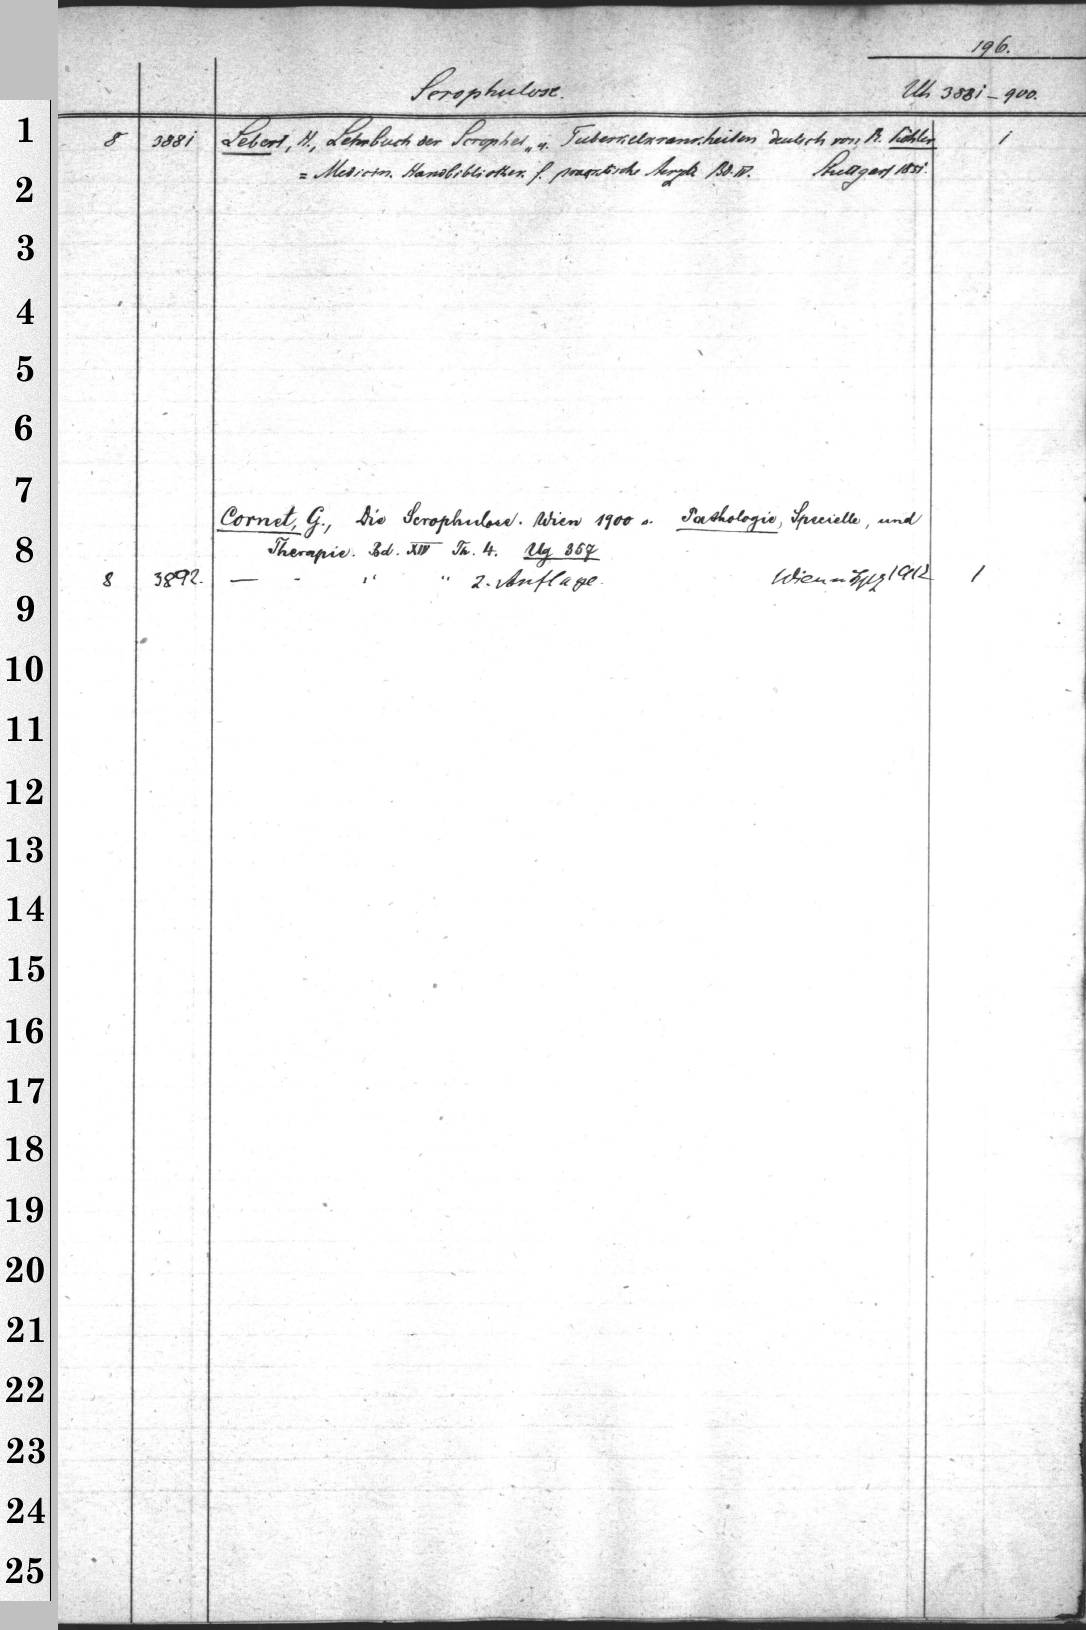 196.
Scrophulose. Uh 3881-900.
1 8 3881 Lebert, H., Lehrbuch der Scrophel „ u. Tuberkelkrankheiten deutsch von R. Köhler 1
2 = Medicin. Handbibliothek f. praktische Aerzte Bd. IV. Stuttgart 1851.
3
4
5
6
7
Cornet, G., Die Scrophulose. Wien 1900 s. Pathologie, Specielle, und
8 Therapie. Bd. XIV Th. 4. Ug 357
8 3892. — - " " 2. Auflage. Wien u Lpzg 1912 1
9
10
11
12
13
14
15
16
17
18
19
20
21
22
23
24
25